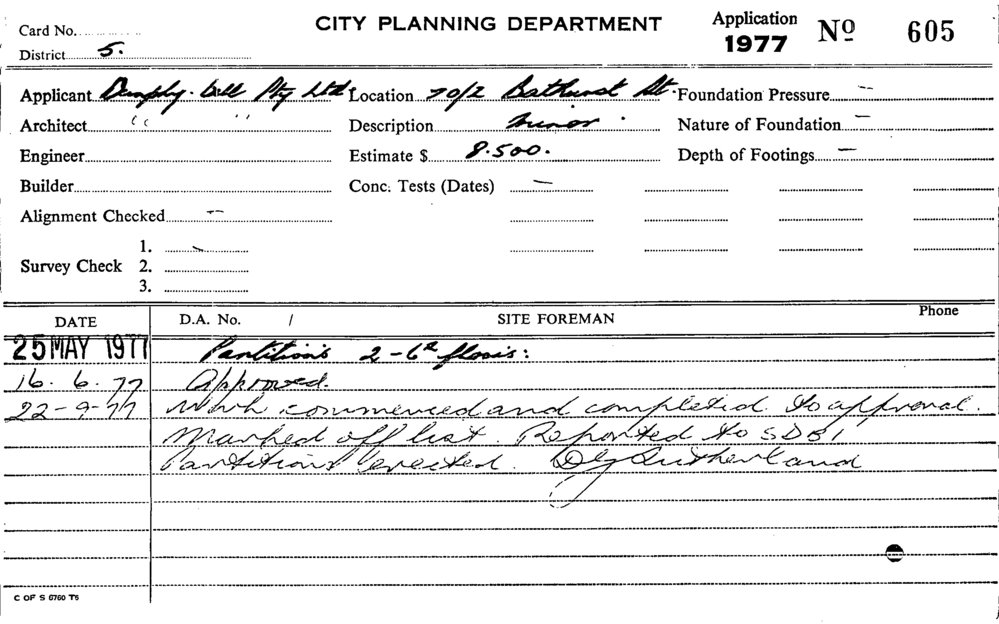 CITY PLANNING DEPARTMENT
Application 1977 Nº 605
Card No.
District 5.
Applicant Pty Ltd Location 70/2 Bathurst St. Foundation Pressure —
Architect " " Description Minor. Nature of Foundation —
Engineer Estimate $ 8.500. Depth of Footings —
Builder Conc. Tests (Dates) —
Alignment Checked —
Survey Check 1.
2.
3.
DATE D.A. No. / SITE FOREMAN Phone
25 MAY 1977 Partitions 2-6th floors:
16. 6. 77 Approved.
22-9-77 Work commenced and completed to approval.
Marked off list. Reported to SDBI
Partitions erected. Sutherland
C OF S 6760 T6